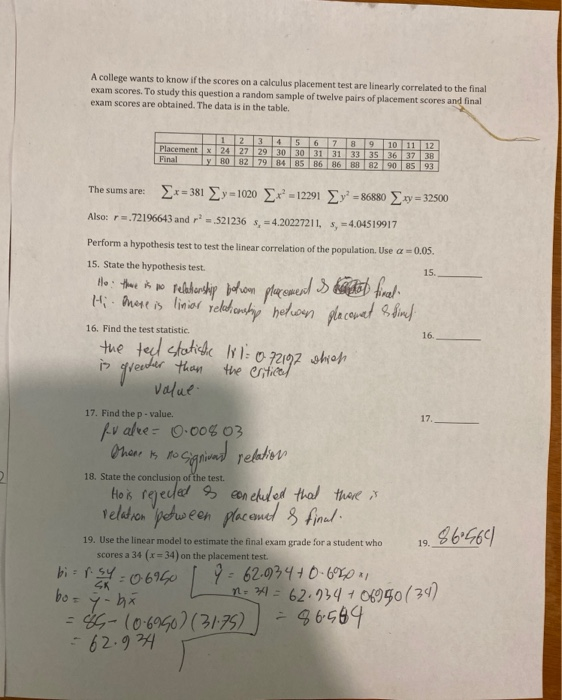 A college wants to know if the scores on a calculus placement test are linearly correlated to the final
exam scores. To study this question a random sample of twelve pairs of placement scores and final
exam scores are obtained. The data is in the table.
1 2 3 4 5 6 7 8 9 10 11 12
Placement x 24 27 29 30 30 31 31 33 35 36 37 38
Final y 80 82 79 84 85 86 86 88 82 90 85 93
The sums are: ∑x = 381 ∑y = 1020 ∑x² = 12291 ∑y² = 86880 ∑xy = 32500
Also: r = .72196643 and r² = .521236 sₓ = 4.20227211, sᵧ = 4.04519917
Perform a hypothesis test to test the linear correlation of the population. Use α = 0.05.
15. State the hypothesis test. 15.
Ho: there is no relationship between placement & final.
H1: there is liniar relationship between placement & final
16. Find the test statistic. 16.
the test statistic |r|= 0.72197 which
is greater than the critical
value.
17. Find the p - value. 17.
P.value = 0.00803
there is no signivant relation
18. State the conclusion of the test.
Ho is rejected & concluded that there is
relation between placemet & final.
19. Use the linear model to estimate the final exam grade for a student who 19. 86.564
scores a 34 (x = 34) on the placement test.
bi = r. sy/sx = 0.6950 ŷ = 62.934 + 0.6950 x,
bo = ȳ - b₁x̄ x = 34 = 62.934 + 0.6950(34)
= 85-(0.6950)(31.75) = 86.564
= 62.934